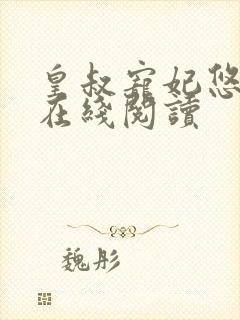 皇叔寵妃悠
在綫閱讀
魏彤